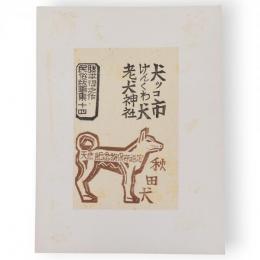 犬ッコ市
けんくわ犬
老犬神社
勝平得之作
民俗版畫集十四
秋田犬